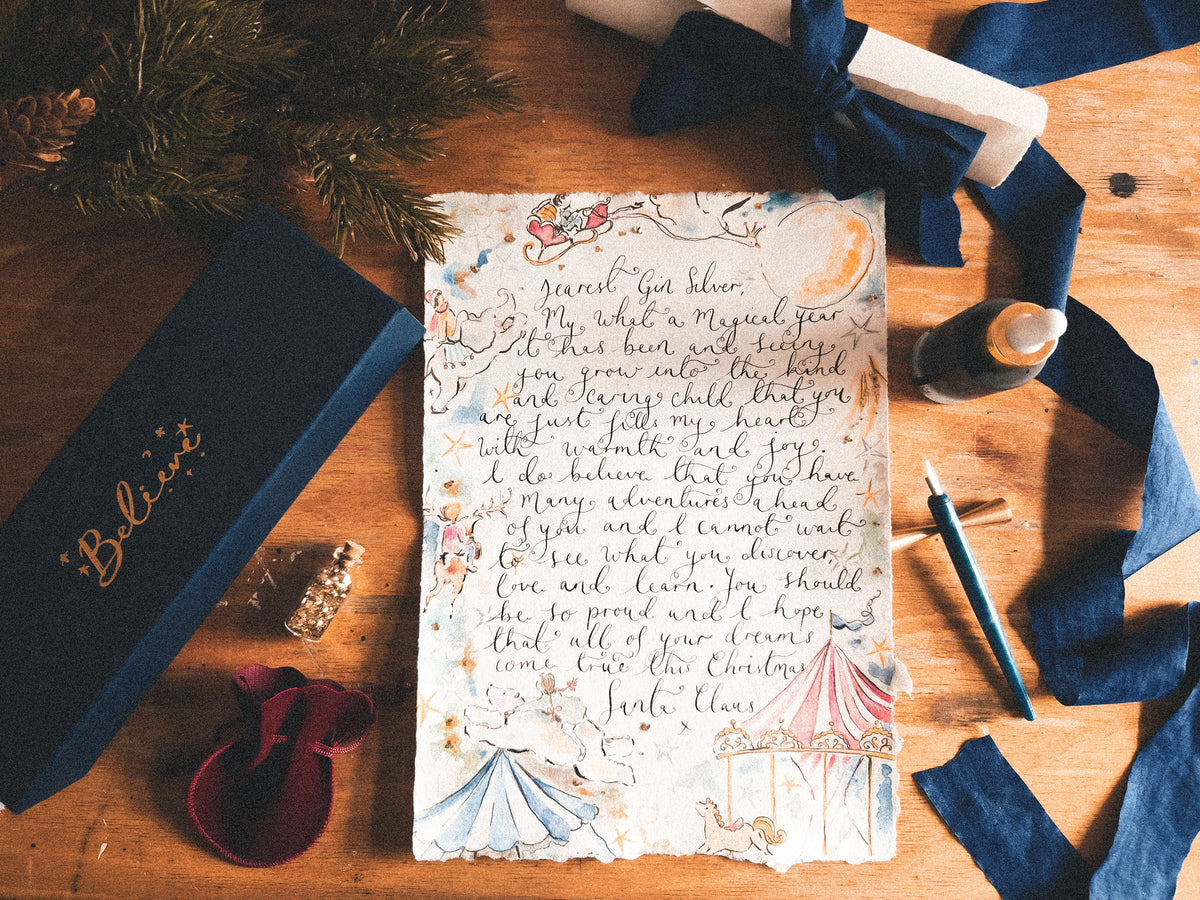 Believe
Dearest Gin Silver,
My what a Magical year
it has been and seeing
you grow into the kind
and caring child that you
are just fills my heart
with warmth and joy.
I do believe that you have
Many adventures ahead
of you and I cannot wait
to see what you discover,
love and learn. You should
be so proud and I hope
that all of your dreams
come true this Christmas
Santa Claus
x